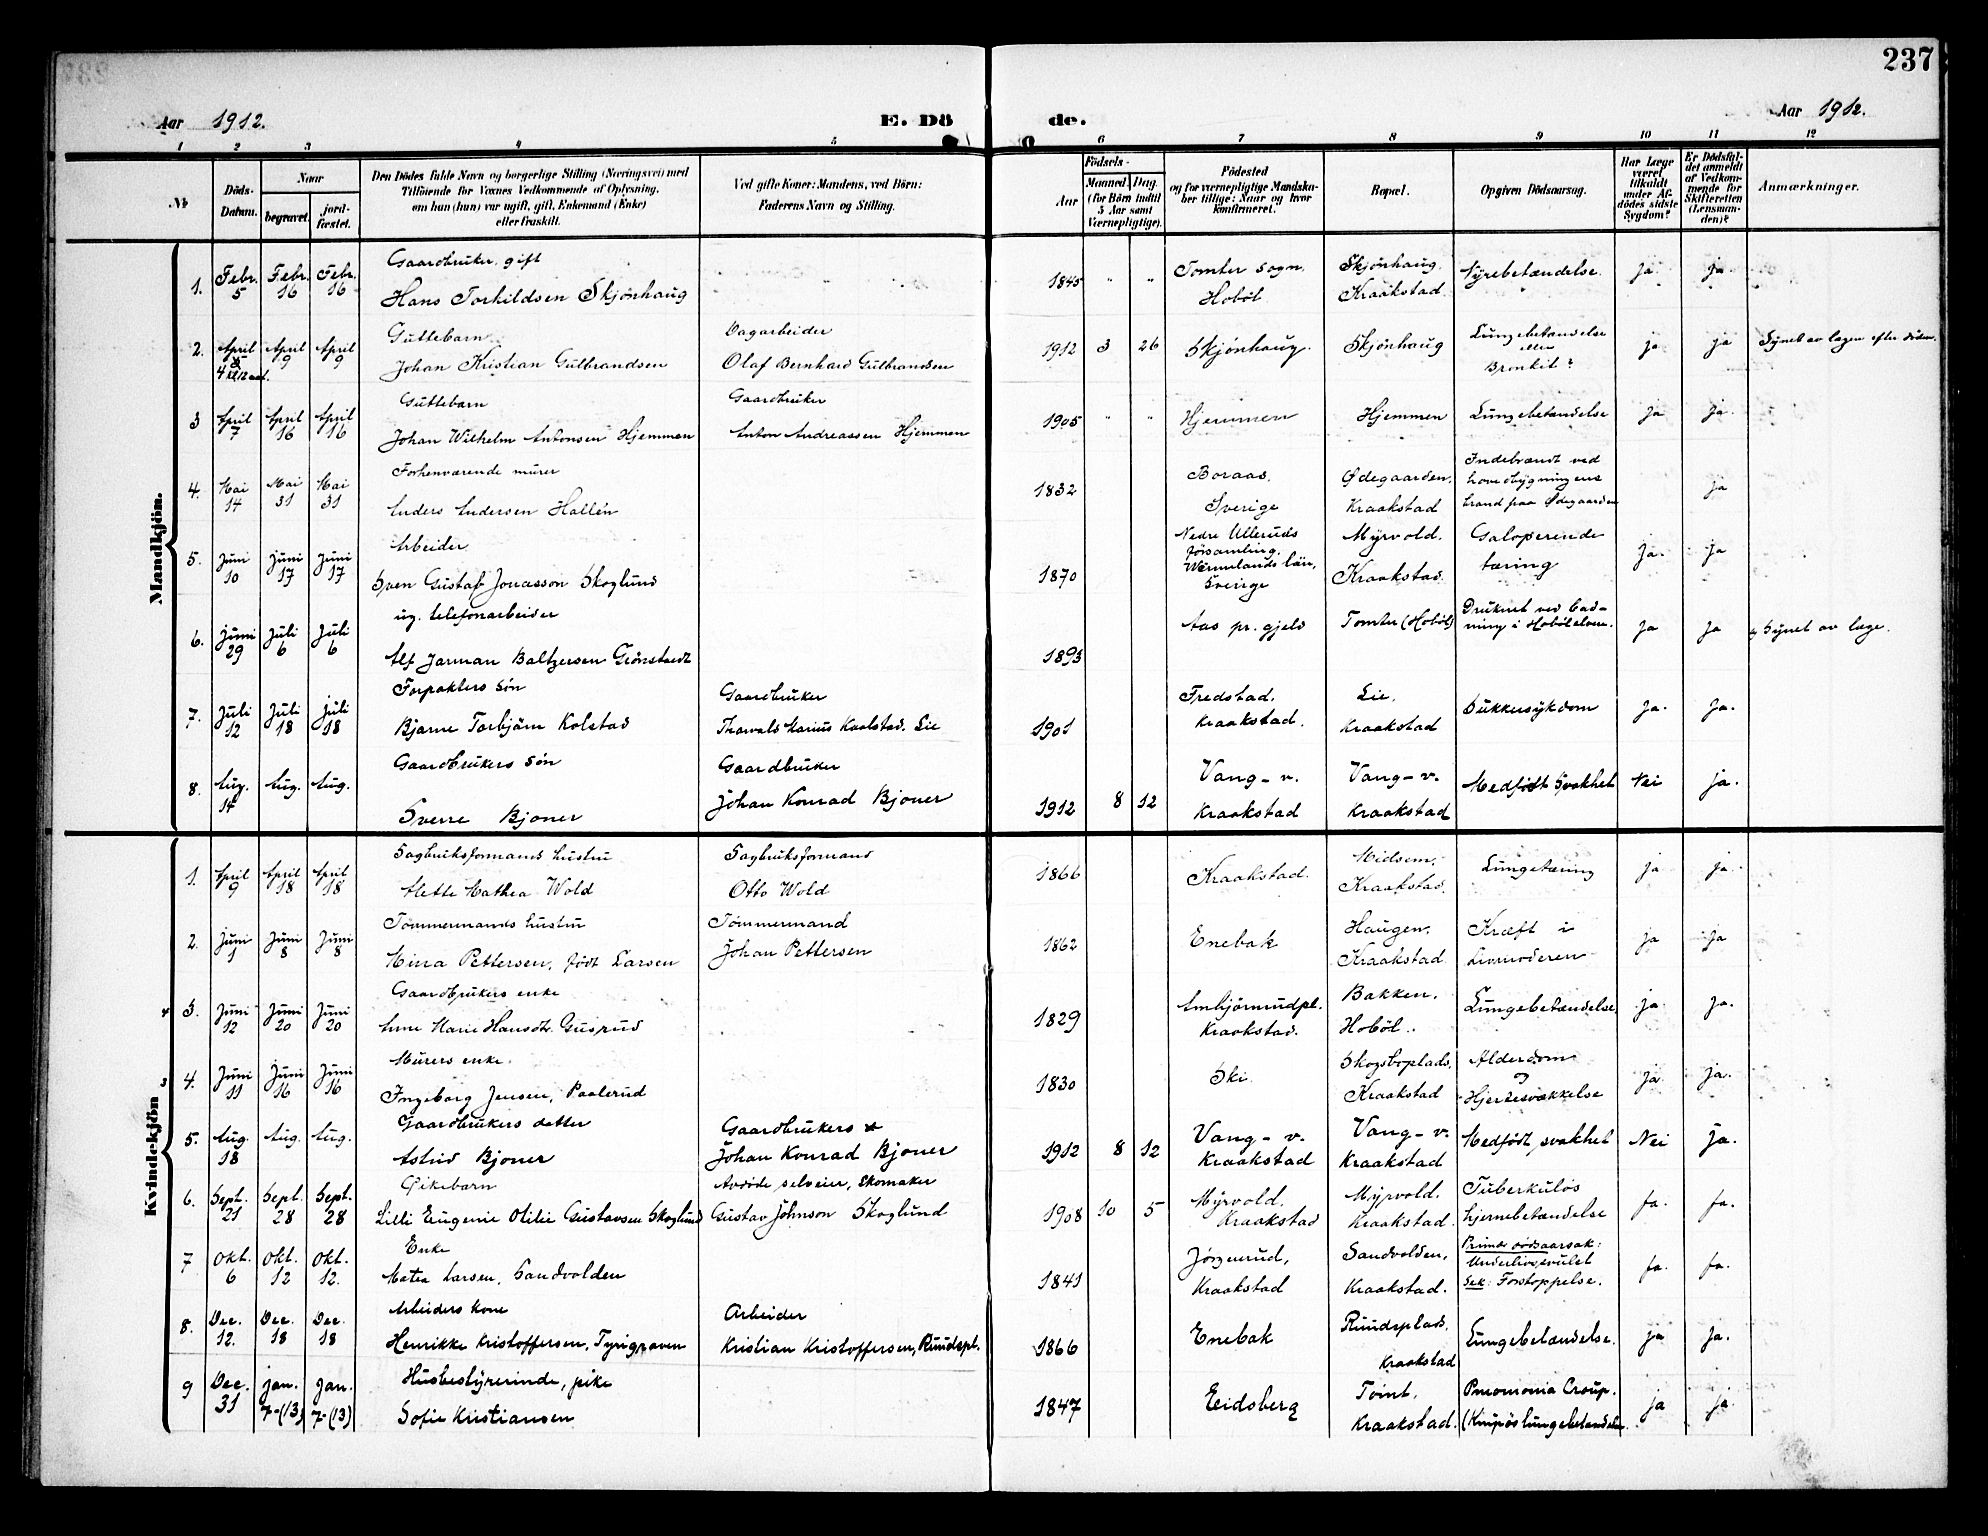 237
Aar 1912.
E. Dö
de.
Aar 1912.
1 2 3 4 5 6 7 8 9 10 11 12
№
Döds-
Datum.
Naar
begravet.
jord-
fæstet.
Den Dödes fulde Navn og borgerlige Stilling (Næringsvei) med
Tilföiende for Voxnes Vedkommende af Oplysning,
om han (hun) var ugift, gift, Enkemand (Enke)
eller fraskilt.
Ved gifte Koner: Mandens, ved Börn:
Faderens Navn og Stilling.
Födsels-
Aar
Maaned. Dag.
(for Börn indtil
5 Aar samt
Værnepligtige).
Födested
og for værnepligtige Mandska-
ber tillige: Naar og hvor
konfirmeret.
Bopæl.
Opgiven Dödsaarsag.
Har Læge
været
tilkaldt
under Af-
dödes sidste
Sygdom?
Er Dödsfal-
det anmeldt
af Vedkom-
mende for
Skifteretten
(Lensman-
den)?
Anmærkninger.
Mandkjön.
1. Febr. 5 Febr. 16 Febr. 16 Gaardbruker, gift
Hans Torkildsen Skjönhaug 1845 " " Tomter sogn, Hoböl Skjönhaug Kraakstad Nyrebetændelse. ja. ja.
2. April 4 kl 12 nat. April 9 April 9 Guttebarn
Johan Kristian Gulbrandsen Dagarbeider Olaf Bernhard Gulbrandsen 1912 3 26 Skjönhaug. Skjönhaug Lungebetændelse eller Bronkit? ja ja Synet av lægen efter döden.
3 April 7 April 16 April 16 Guttebarn
Johan Wilhelm Antonsen Hjemmen Gaardbruker Anton Andreassen Hjemmen 1905 " " Hjemmen Hjemmen Lungebetændelse ja ja.
4. Mai 14 Mai 31 Mai 31 Forhenværende murer
Anders Andersen Hallén 1832 Boraas, Sverige Ødegaarden, Kraakstad Indebrændt ved hovedbygningens brand paa Ødegaarden ja
5. Juni 10 Juni 17 Juni 17 Arbeider
Sven Gustaf Jonasson Skoglund 1870 Nedre Ulleruds församling, Wermlands län, Sverige Myrvold. Kraakstad. Galoperende tæring ja. ja
6. Juni 29 Juli 6 Juli 6 ug. telefonarbeider
Alf Jarman Baltzersen Grönstaedt 1893 Aas pr. gjeld Tomter (Hoböl) Druknet ved bad-ning i Hobölelven. ja ja Synet av læge.
7. Juli 12 Juli 18 Juli 18 Forpakters sön
Bjarne Torbjörn Kolstad Gaardbruker Thorvald Marius Kaalstad. Lie 1901 Fredstad. Kraakstad. Lie. Kraakstad Sukkersykdom ja. ja.
8. Aug. 14 Aug. Aug. Gaardbrukers sön
Sverre Bjoner Gaardbruker Johan Konrad Bjoner 1912 8 12 Vang - v. Kraakstad Vang - v. Kraakstad Medfödt svakhet Nei ja.
Kvindekjön
1. April 9 April 18 April 18 Sagbruksformands hustru
Mette Mathea Wold Sagbruksformand Otto Wold 1866 Kraakstad. Midsem, Kraakstad. Lungetæring ja ja.
2. Juni 1 Juni 8 Juni 8 Tömmermands hustru
Mina Pettersen, född Larsen Tömmermand Johan Pettersen 1862 Enebak Haugen. Kraakstad Kræft i Livmoderen ja ja
3. Juni 12 Juni 20 Juni 20 Gaardbrukers enke
Anne Marie Hansdtr. Gusrud 1829 Ambjörnrudpl. Kraakstad. Bakken. Hoböl. Lungebetændelse. ja. ja.
4. Juni 11 Juni 16 Juni 16 Murers enke.
Ingeborg Jensen, Paalerud 1830 Ski Skogsboplads, Kraakstad Alderdom og Hjertesvækkelse ja ja.
5. Aug. 18 Aug. Aug. Gaardbrukers datter
Astrid Bjoner Gaardbrukers Johan Konrad Bjoner 1912 8 12 Vang - v. Kraakstad Vang - v. Kraakstad Medfödt svakhet Nei ja.
6. Sept. 21 Sept. 28 Sept. 28 Pikebarn
Lilli Eugenie Otilie Gustavsen Skoglund Avdöde selveier, Skomaker Gustav Johnson Skoglund 1908 10 5 Myrvold. Kraakstad Myrvold. Kraakstad. Tuberkulös hjernebetændelse ja. ja.
7 Okt. 6 Okt. 12 Okt. 12. Enke
Matea Larsen, Sandvolden 1841 Jörgenrud, Kraakstad Sandvolden, Kraakstad. Primær dödsaarsak: Underlivssvulst Sek: Forstoppelse. ja. ja.
8. Dec. 12. Dec. 18 Dec. 18 Arbeiders kone
Henrikke Kristoffersen, Tyrigraven Arbeider Kristian Kristoffersen, Ruudspl. 1866 Enebak Ruudsplads, Kraakstad Lungebetændelse. ja ja.
9 Dec. 31 jan. 7-(13) jan. 7-(13) Husbestyrerinde, pike
Sofie Kristiansen 1847 Eidsberg Kraakstad. Pneomonia Croup. ja ja.